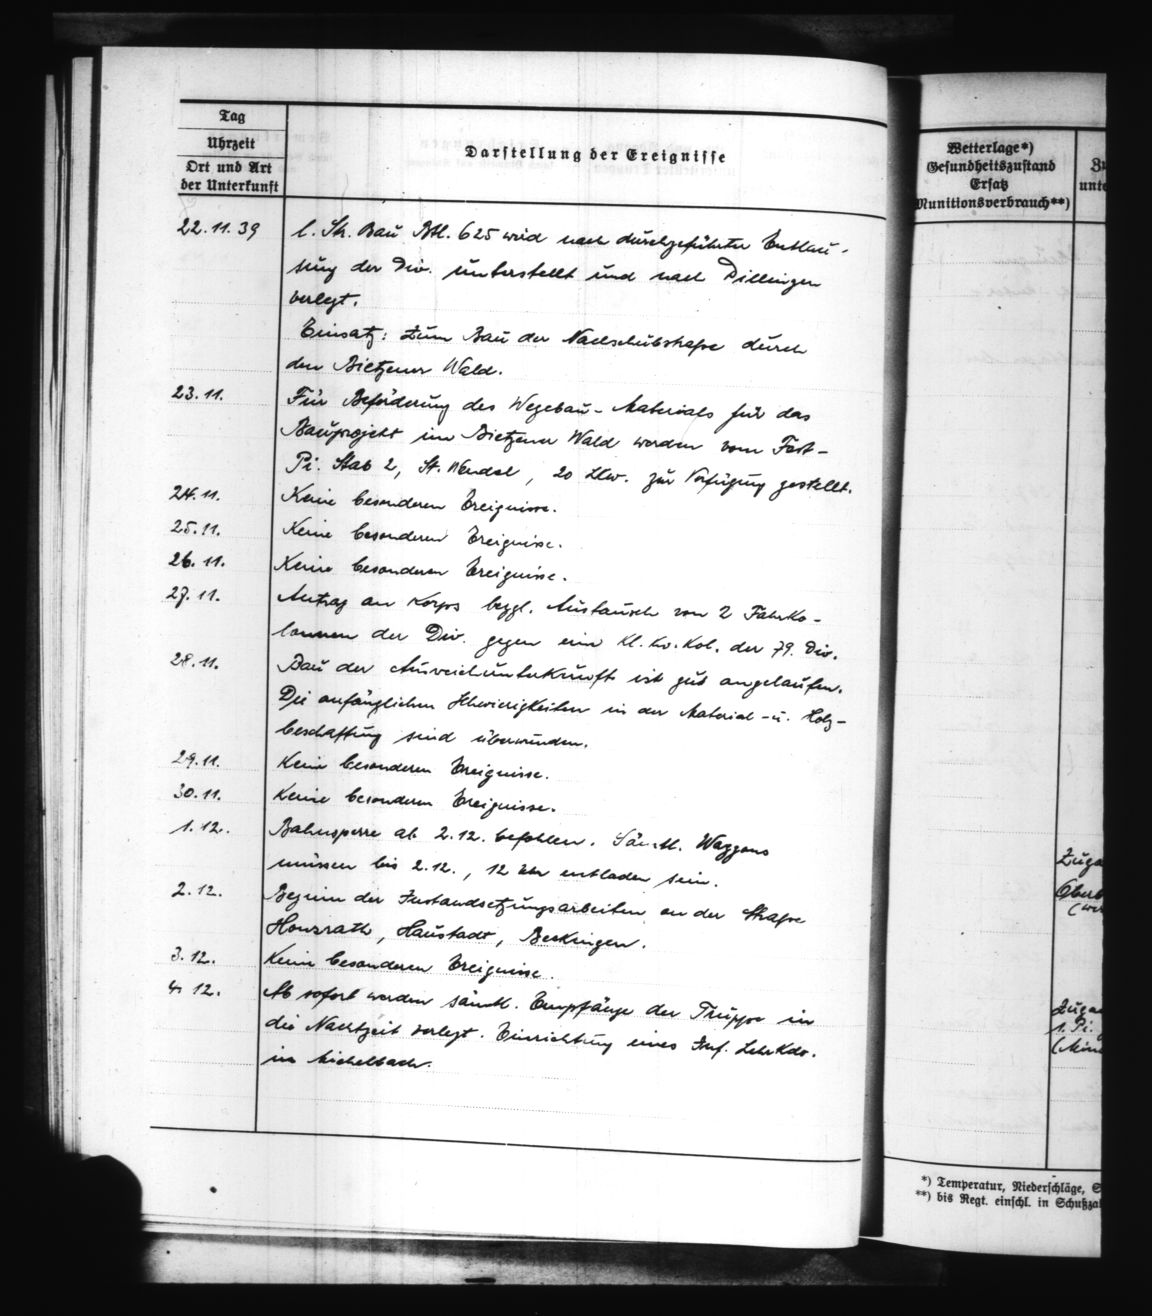 Tag
Uhrzeit
Ort und Art
der Unterkunft
Darstellung der Ereignisse
22.11.39 l. Str. Bau Btl. 625 wird nach durchgeführter Entlau-
sung der Div. unterstellt und nach Dillingen
verlegt.
Einsatz: Zum Bau der Nachschubstraße durch
den Bietzener Wald.
23.11. Für Beförderung des Wegebau-Materials für das
Bauprojekt im Bietzener Wald werden vom Fest-
Pi. Stab 2, St. Wendel, 20 Lkw. zur Verfügung gestellt.
24.11. Keine besonderen Ereignisse.
25.11. Keine besonderen Ereignisse.
26.11. Keine besonderen Ereignisse.
27.11. Antrag an Korps bezgl. Austausch von 2 Fahrko-
lonnen der Div. gegen eine Kl. Kw. Kol. der 79. Div.
28.11. Bau der Ausweichunterkünfte ist gut angelaufen.
Die anfänglichen Schwierigkeiten in der Material- u. Holz-
beschaffung sind überwunden.
29.11. Keine besonderen Ereignisse.
30.11. Keine besonderen Ereignisse.
1.12. Bahnsperre ab 2.12. befohlen. Sämtl. Waggons
müssen bis 2.12., 12 Uhr entladen sein.
2.12. Beginn der Instandsetzungsarbeiten an der Straße
Honzrath, Haustadt, Beckingen.
3.12. Keine besonderen Ereignisse.
4.12. Ab sofort werden sämtl. Empfänge der Truppe in
die Nachtzeit verlegt. Einrichtung eines Inf. Lehrkdo.
in Michelbach.
Wetterlage*)
Gesundheitszustand
Ersatz
Munitionsverbrauch**)
Zu
unte
Zuga
Oberb
Zuga
1. Pi.
*) Temperatur, Niederschläge, S
**) bis Regt. einschl. in Schußza